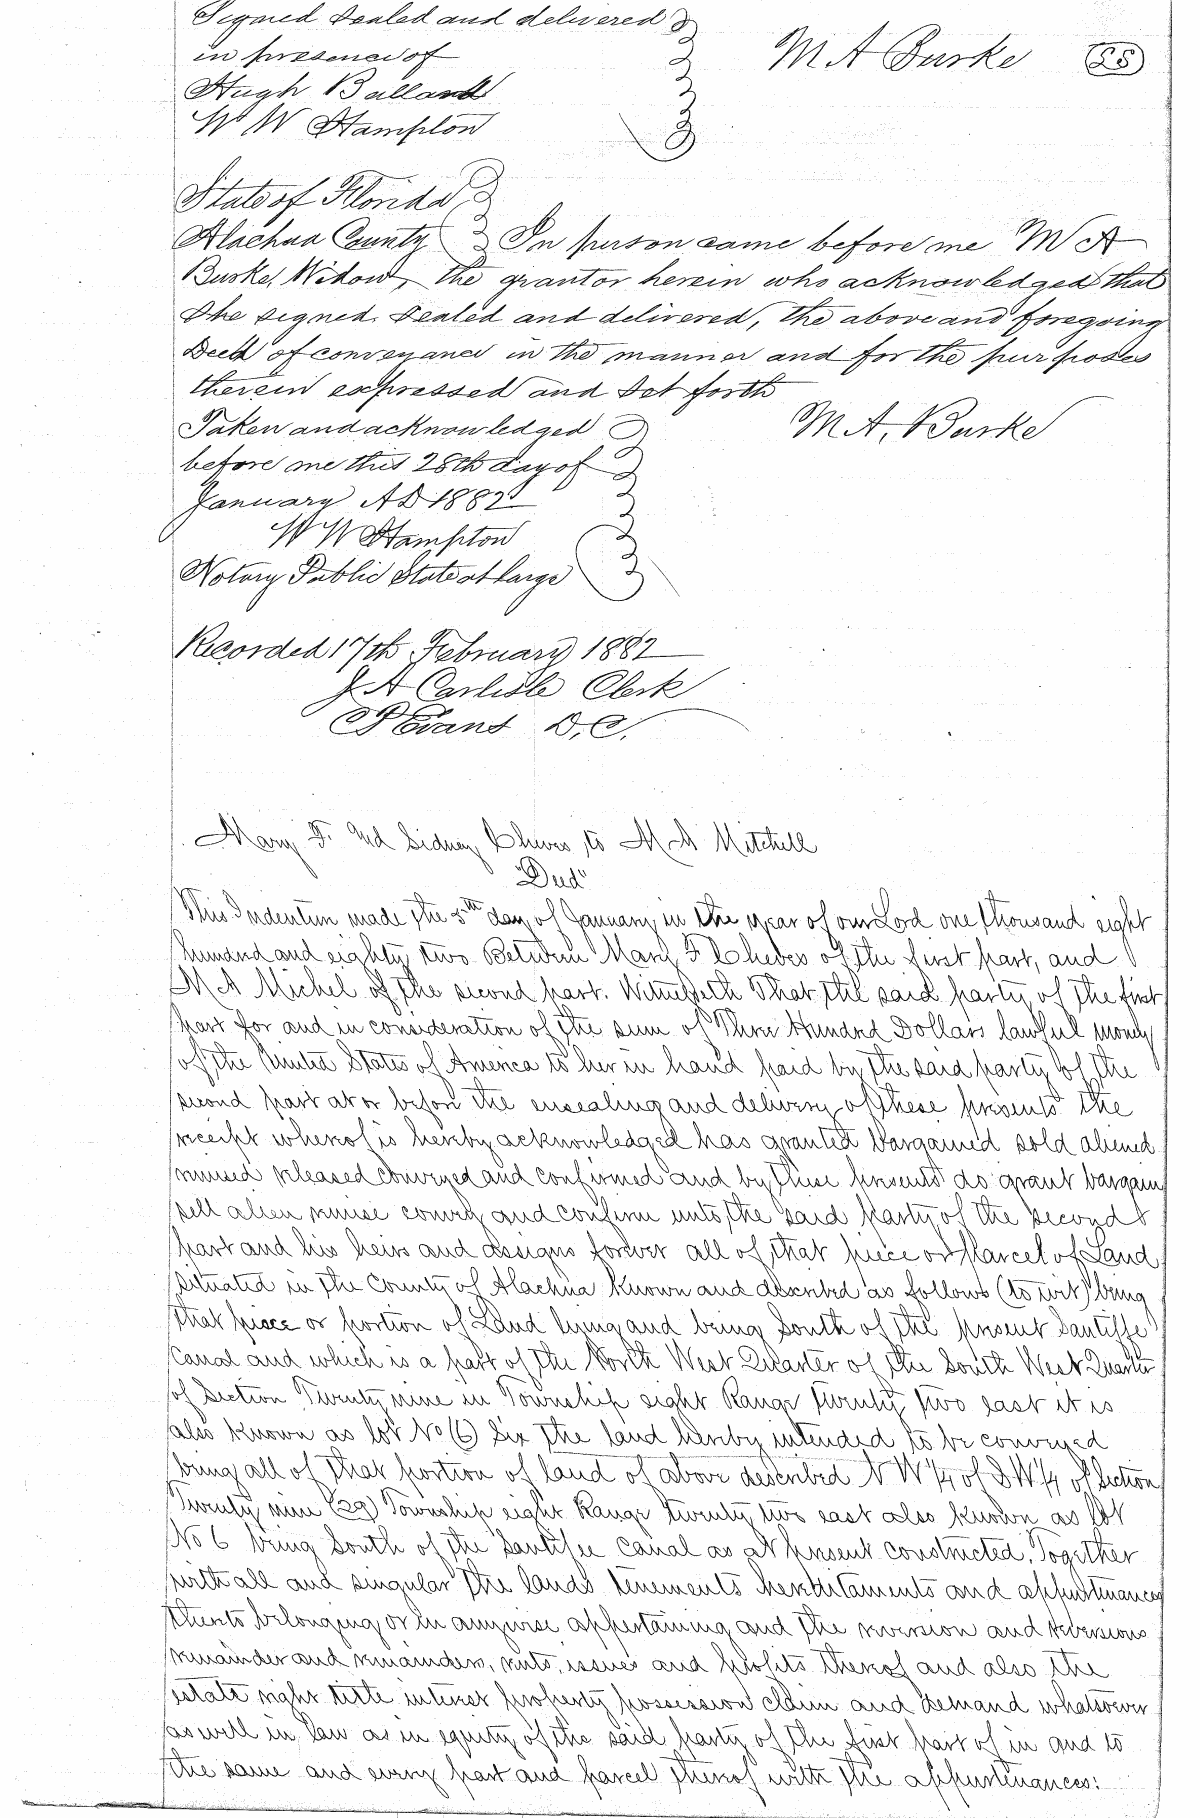 Signed Sealed and delivered
in presence of
M A Burke LS
Hugh Ballard
W W Hampton
State of Florida
Alachua County In person came before me M A
Burke, Widow, the grantor herein who acknowledged that
She signed, Sealed and delivered, the above and foregoing
Deed of conveyance in the manner and for the purposes
therein expressed and Set forth
M A, Burke
Taken and acknowledged
before me this 28th day of
January AD 1882
W W Hampton
Notary Public State at Large
Recorded 17th February 1882
J A Carlisle Clerk
Evans D.C.
Mary F. and Sidney Cheves to M A Mitchell
"Deed"
This Indenture made the 5th day of January in the year of our Lord one thousand eight
hundred and eighty two Between Mary F Cheves of the first part, and
M A Michel of the second part. Witnesseth That the said party of the first
part for and in consideration of the sum of Three Hundred Dollars lawful money
of the United States of America to her in hand paid by the said party of the
second part at or before the ensealing and delivery of these presents the
receipt whereof is hereby acknowledged has granted bargained sold aliened
remised released conveyed and confirmed and by these presents do grant bargain
sell alien remise convey and confirm unto the said party of the second
part and his heirs and assigns forever all of that piece or Parcel of Land
situated in the County of Alachua known and described as follows (to wit) being
that piece or portion of Land lying and being South of the present Santiffe
Canal and which is a part of the North West Quarter of the South West Quarter
of Section Twenty nine in Township eight Range twenty two east it is
also known as lot No (6) Six the land hereby intended to be conveyed
being all of that portion of land of above described N W 1/4 of S W 1/4 of Section
Twenty nine (29) Township eight Range twenty two east also known as lot
No 6 being South of the Santifee Canal as at present constructed. Together
with all and singular the lands tenements hereditaments and appurtenances
thereto belonging or in anywise appertaining and the reversion and reversions
remainder and remainders, rents, issues and profits thereof and also the
estate right title interest property possession claim and demand whatsoever
as well in law as in equity of the said party of the first part of in and to
the same and every part and parcel thereof with the appurtenances: